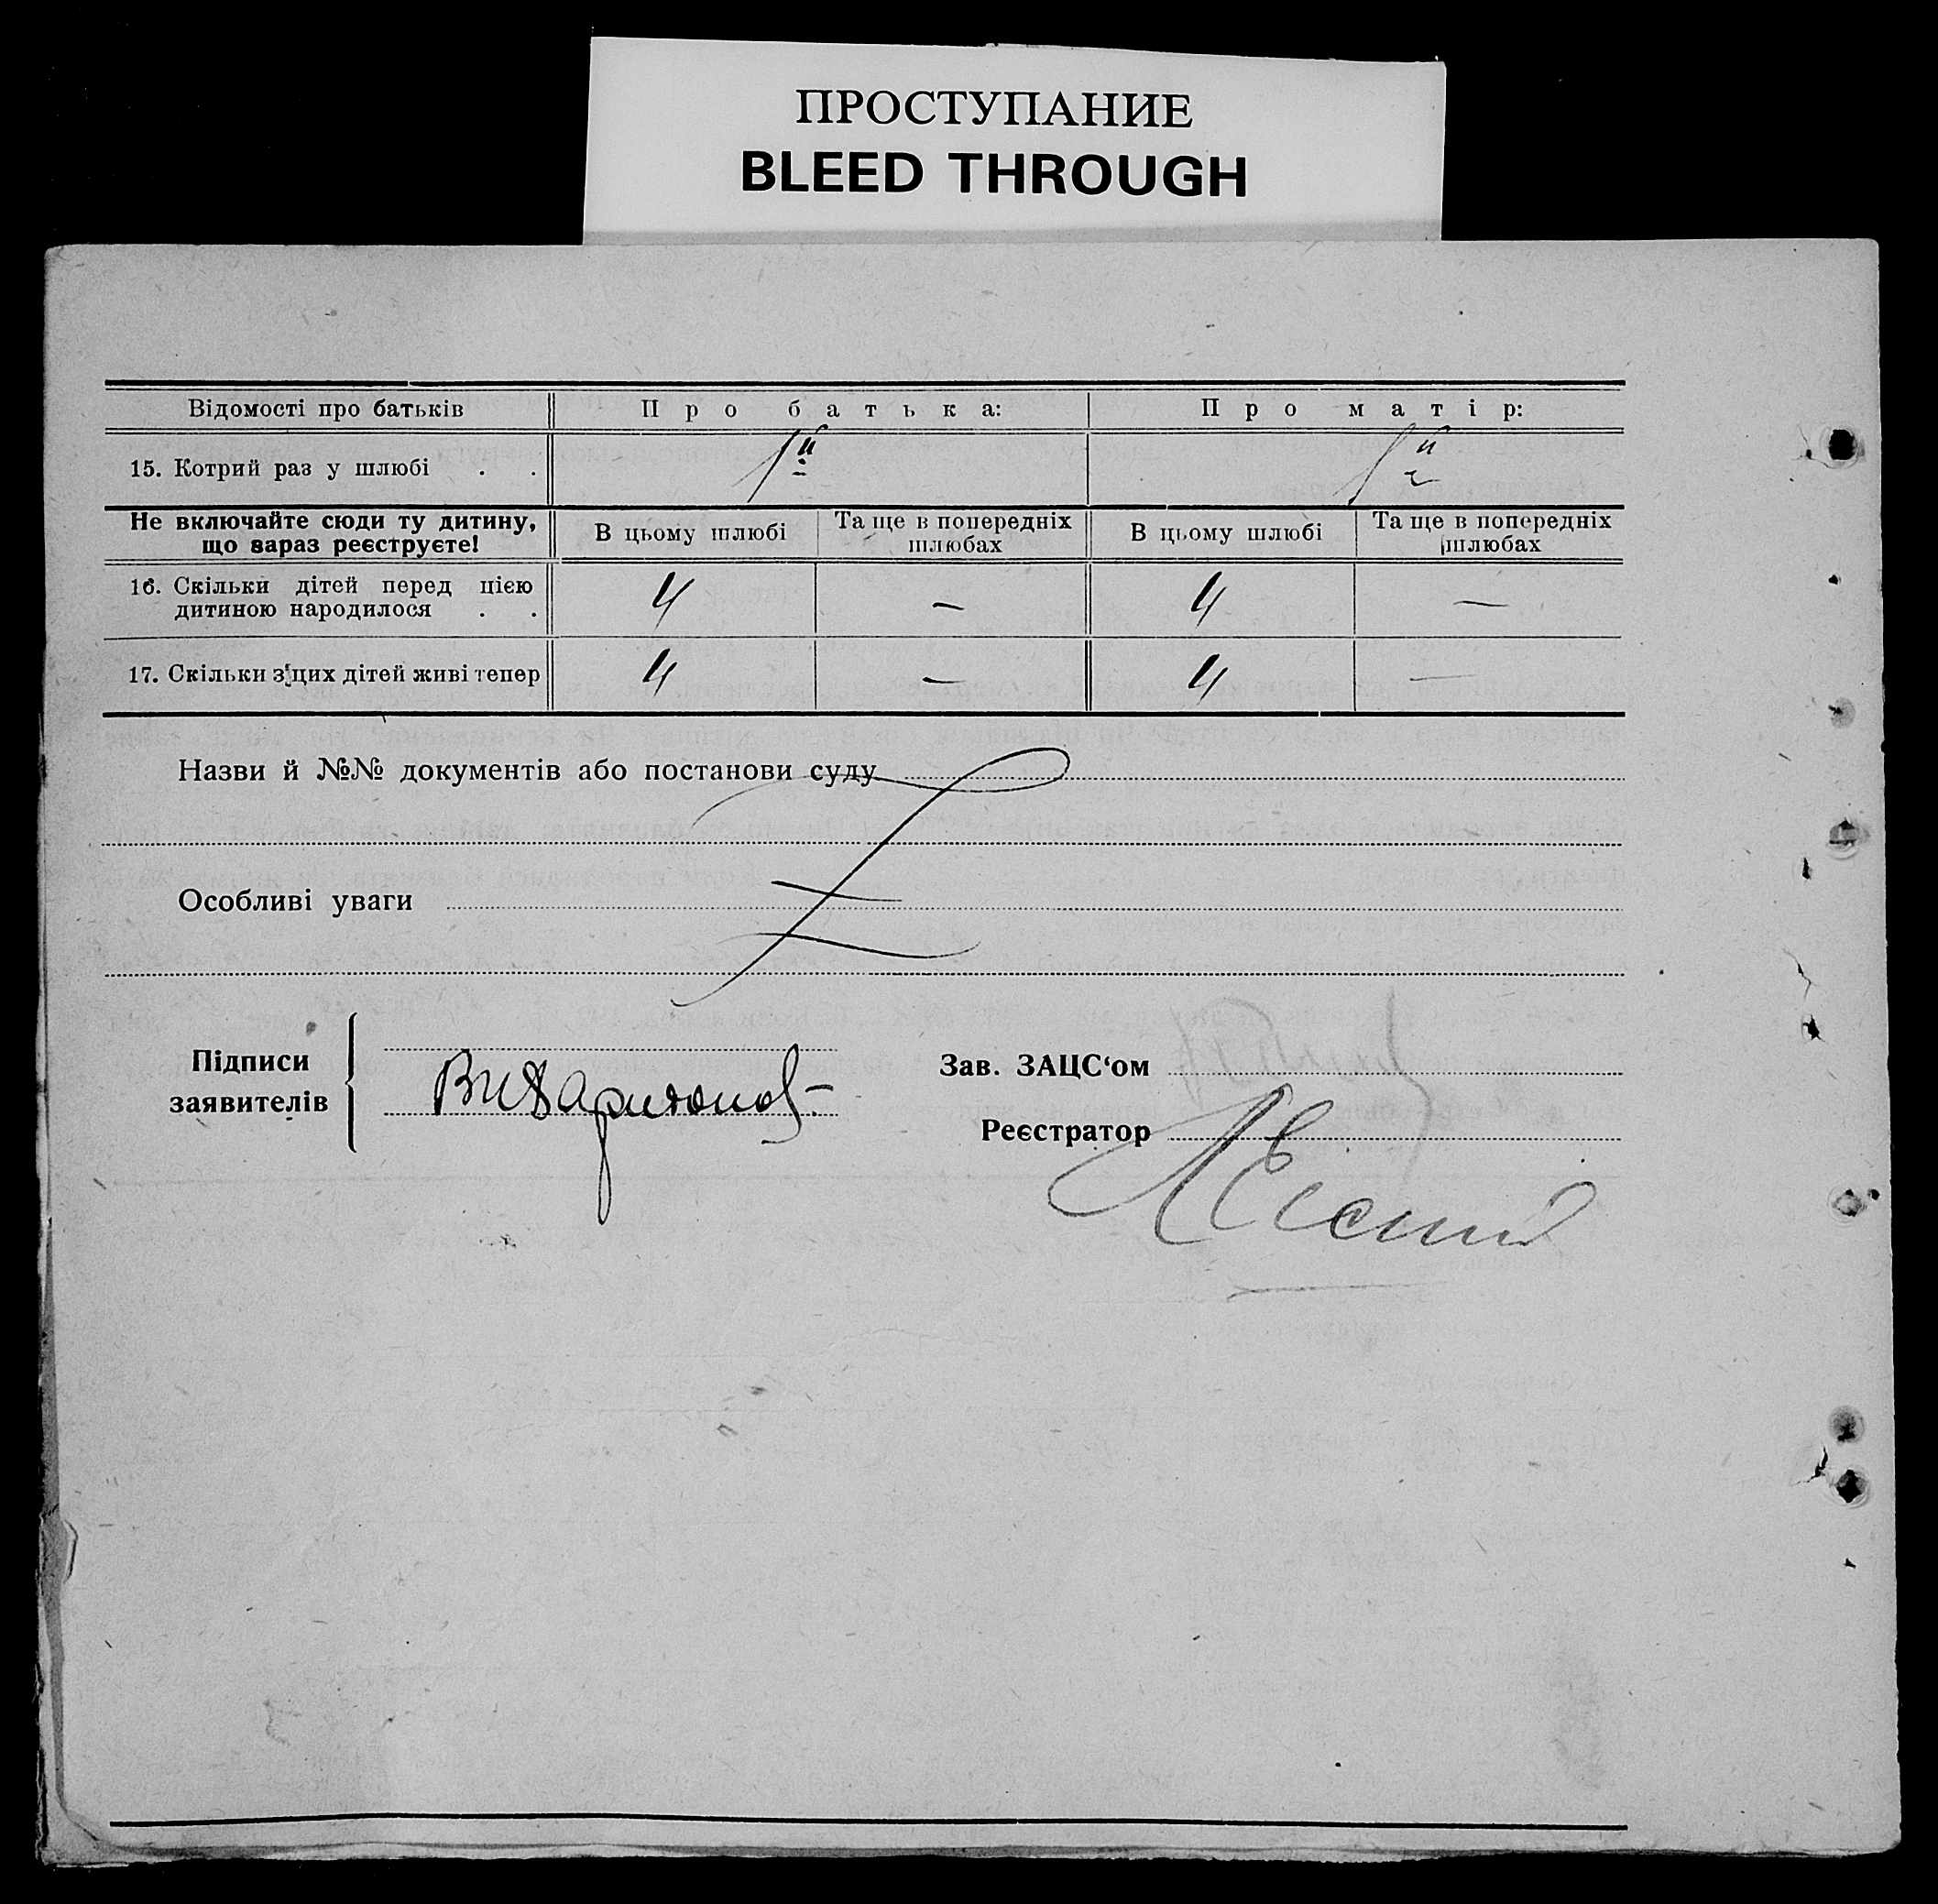 ПРОСТУПАНИЕ
BLEED THROUGH
Відомості про батьків Про батька: Про матір:
15. Котрий раз у шлюбі . . 1й 1й
Не включайте сюди ту дитину, що зараз реєструєте! В цьому шлюбі Та ще в попередніх шлюбах В цьому шлюбі Та ще в попередніх шлюбах
16. Скільки дітей перед цією
дитиною народилося . . 4 — 4 —
17. Скільки з цих дітей живі тепер 4 — 4 —
Назви й №№ документів або постанови суду
Особливі уваги
Підписи
заявителів
Зав. ЗАЦС‘ом
Реєстратор